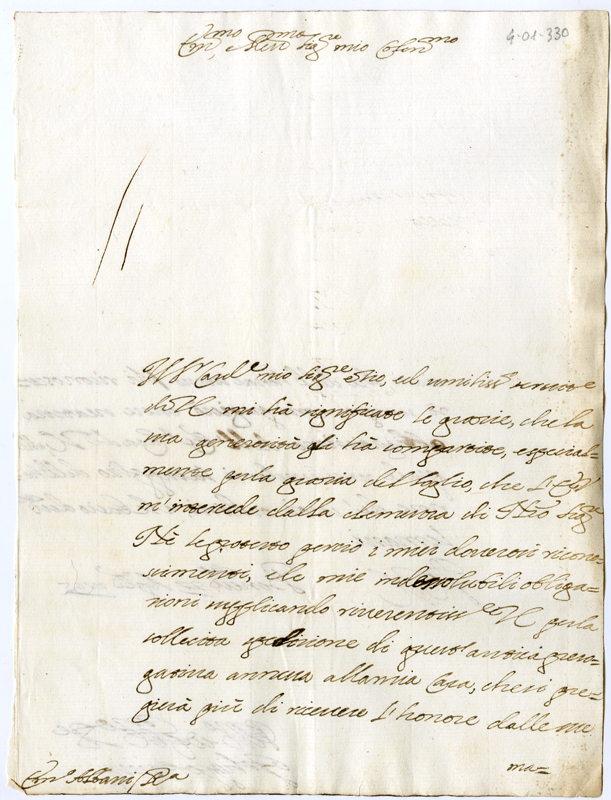 4-01-330
Em.mo e Rev.mo Sig.re mio Oss.mo
Il S.r Card.le mio Sig.re e Zio, ed umiliss.o servitore
di V.E. mi hà significate le grazie, che la
sua generosità gli hà compartite, especial=
mente per la grazia del foglio, che l'E.V.
m'intercede dalla clemenza di N'ro Sig.re
Nè le protesto perciò i miei doverosi ricono=
scimenti, e le mie indissolubili obliga=
zioni supplicando riverentem.te V.E. per la
sollecita spedizione di questa antica prero=
gativa annessa alla mia Casa, che si pre=
gierà più di ricevere l'honore dalle sue
ma=
Em.o Albani / R.a